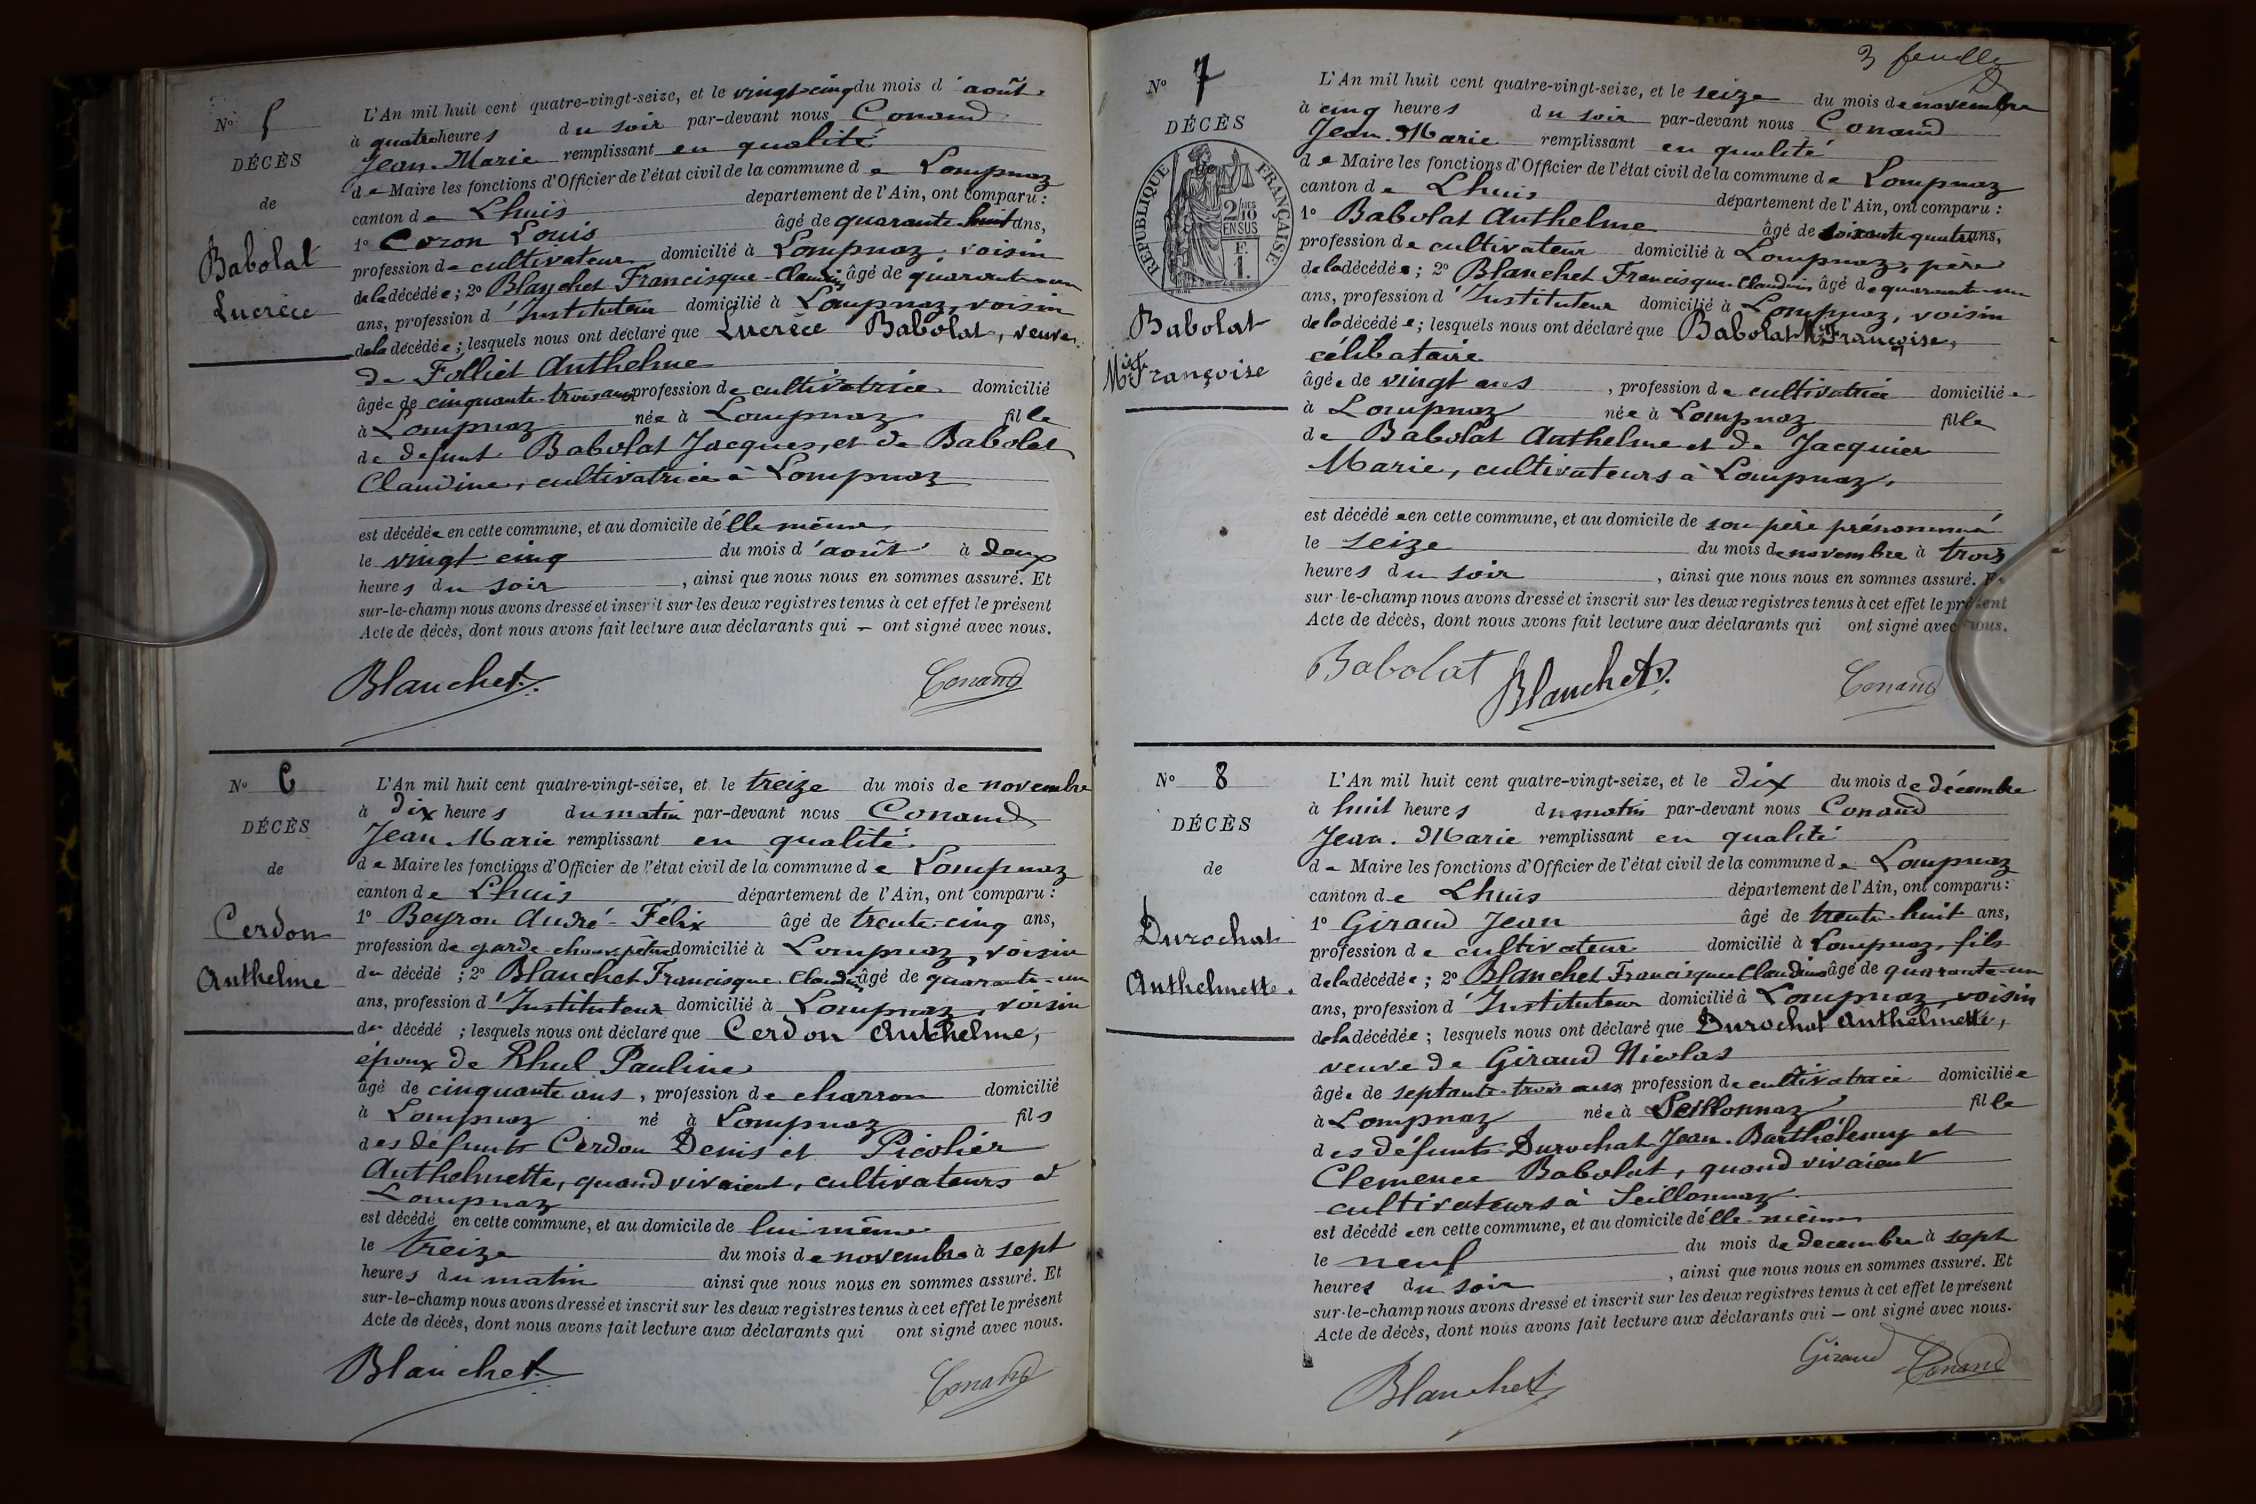 N° 5
DÉCÈS
de
Babolat
Lucrèce
L'An mil huit cent quatre-vingt-seize, et le vingt-cinq du mois d'août
à quatre heures du soir par-devant nous Conand
Jean-Marie remplissant en qualité
de Maire les fonctions d'Officier de l'état civil de la commune de Lompnaz
canton de Lhuis département de l'Ain, ont comparu :
1° Coron Louis âgé de quarante-huit ans,
profession de cultivateur domicilié à Lompnaz, voisin
de la décédée ; 2° Blanchet Francisque-Claudius âgé de quarante-un
ans, profession d'Instituteur domicilié à Lompnaz, voisin
de la décédée ; lesquels nous ont déclaré que Lucrèce Babolat, veuve
de Folliet Anthelme
âgée de cinquante-trois ans profession de cultivatrice domicilié
à Lompnaz née à Lompnaz fille
de défunt Babolat Jacques, et de Babolat
Claudine, cultivatrice à Lompnaz
est décédée en cette commune, et au domicile d'elle même
le vingt-cinq du mois d'août à deux
heures du soir , ainsi que nous nous en sommes assuré. Et
sur-le-champ nous avons dressé et inscrit sur les deux registres tenus à cet effet le présent
Acte de décès, dont nous avons fait lecture aux déclarants qui — ont signé avec nous.
Blanchet Conand
N° 6
DÉCÈS
de
Cerdon
Anthelme
L'An mil huit cent quatre-vingt-seize, et le treize du mois de novembre
à dix heures du matin par-devant nous Conand
Jean-Marie remplissant en qualité
de Maire les fonctions d'Officier de l'état civil de la commune de Lompnaz
canton de Lhuis département de l'Ain, ont comparu :
1° Beyron André-Félix âgé de trente-cinq ans,
profession de garde-champêtre domicilié à Lompnaz, voisin
du décédé ; 2° Blanchet Francisque Claudius âgé de quarante-un
ans, profession d'Instituteur domicilié à Lompnaz, voisin
du décédé ; lesquels nous ont déclaré que Cerdon Anthelme,
époux de Rhul Pauline
âgé de cinquante ans, profession de charron domicilié
à Lompnaz né à Lompnaz fils
des défunts Cerdon Denis et Picolier
Anthelmette, quand vivaient, cultivateurs à
Lompnaz
est décédé en cette commune, et au domicile de lui même
le treize du mois de novembre à sept
heures du matin ainsi que nous nous en sommes assuré. Et
sur-le-champ nous avons dressé et inscrit sur les deux registres tenus à cet effet le présent
Acte de décès, dont nous avons fait lecture aux déclarants qui ont signé avec nous.
Blanchet Conand
3 feuille
N° 7
DÉCÈS
RÉPUBLIQUE FRANÇAISE
2/10 EN SUS
F. 1.
Babolat
Mie Françoise
L'An mil huit cent quatre-vingt-seize, et le seize du mois de novembre
à cinq heures du soir par-devant nous Conand
Jean-Marie remplissant en qualité
de Maire les fonctions d'Officier de l'état civil de la commune de Lompnaz
canton de Lhuis département de l'Ain, ont comparu :
1° Babolat Anthelme âgé de soixante quatre ans,
profession de cultivateur domicilié à Lompnaz, père
de la décédée ; 2° Blanchet Francisque Claudius âgé de quarante-un
ans, profession d'Instituteur domicilié à Lompnaz, voisin
de la décédée ; lesquels nous ont déclaré que Babolat Mie Françoise,
célibataire
âgée de vingt ans , profession de cultivatrice domiciliée
à Lompnaz née à Lompnaz fille
de Babolat Anthelme et de Jacquier
Marie, cultivateurs à Lompnaz,
est décédée en cette commune, et au domicile de son père prénommé
le seize du mois de novembre à trois
heures du soir , ainsi que nous nous en sommes assuré. Et
sur-le-champ nous avons dressé et inscrit sur les deux registres tenus à cet effet le présent
Acte de décès, dont nous avons fait lecture aux déclarants qui ont signé avec nous.
Babolat Blanchet Conand
N° 8
DÉCÈS
de
Durochat
Anthelmette.
L'An mil huit cent quatre-vingt-seize, et le dix du mois de décembre
à huit heures du matin par-devant nous Conand
Jean-Marie remplissant en qualité
de Maire les fonctions d'Officier de l'état civil de la commune de Lompnaz
canton de Lhuis département de l'Ain, ont comparu :
1° Giraud Jean âgé de trente-huit ans,
profession de cultivateur domicilié à Lompnaz, fils
de la décédée ; 2° Blanchet Francisque Claudius âgé de quarante-un
ans, profession d'Instituteur domicilié à Lompnaz, voisin
de la décédée ; lesquels nous ont déclaré que Durochat Anthelmette,
veuve de Giraud Nicolas
âgée de septante-trois ans, profession de cultivatrice domiciliée
à Lompnaz née à Seillonnaz fille
des défunts Durochat Jean-Barthélemy et
Clemence Babolat, quand vivaient
cultivateurs à Seillonnaz
est décédée en cette commune, et au domicile d'elle-même
le neuf du mois de decembre à sept
heures du soir , ainsi que nous nous en sommes assuré. Et
sur-le-champ nous avons dressé et inscrit sur les deux registres tenus à cet effet le présent
Acte de décès, dont nous avons fait lecture aux déclarants qui — ont signé avec nous.
Blanchet Giraud Conand